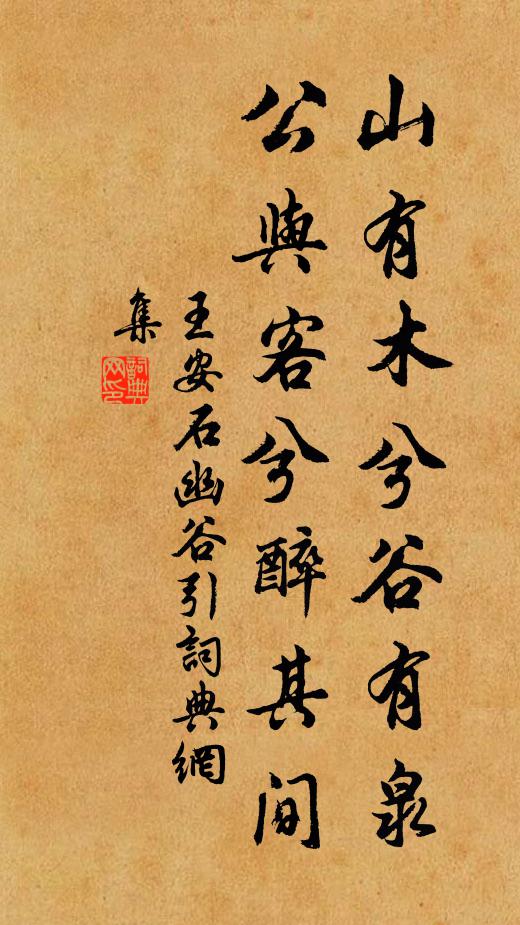 山有木兮谷有泉
公與客兮醉其間
王安石幽谷引詞典網
集
詞典
网印